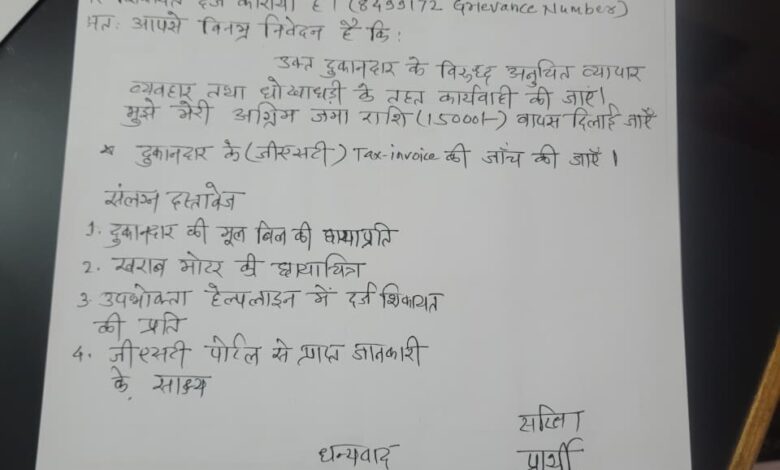 शिकायत दर्ज कराया है। (8499172 Grievance Number)
अतः आपसे विनम्र निवेदन है कि :
उक्त दुकानदार के विरुध्द अनुचित व्यापार
व्यवहार तथा धोखाधड़ी के तहत कार्यवाही की जाएं।
मुझे मेरी अग्रिम जमा राशि (15000/-) वापस दिलाई जाएँ
* दुकानदार के (जीएसटी) Tax-invoice की जाँच की जाएँ ।
संलग्न दस्तावेज
1. दुकानदार की मूल बिल की छायाप्रति
2. खराब मोटर की छायाचित्र
3. उपभोक्ता हेल्पलाइन में दर्ज शिकायत
की प्रति
4. जीएसटी पोर्टल से प्राप्त जानकारी
के साक्ष्य
धन्यवाद
प्रार्थी